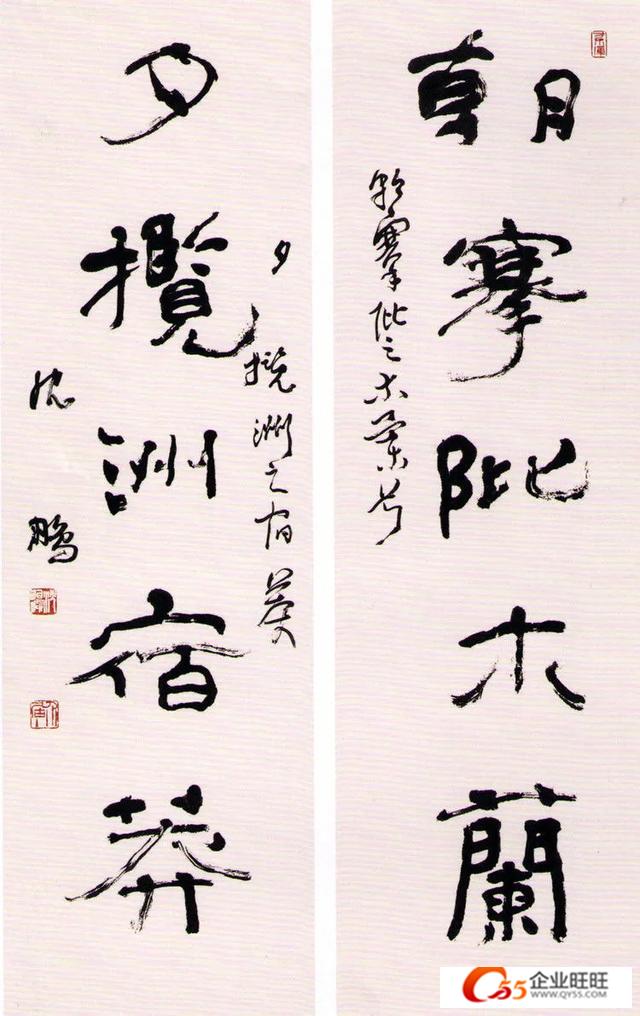 朝搴阰木蘭
朝搴阰之木蘭兮
夕攬洲之宿莽
夕攬洲宿莽
沈鵬
55企业旺旺
WWW.QY55.COM